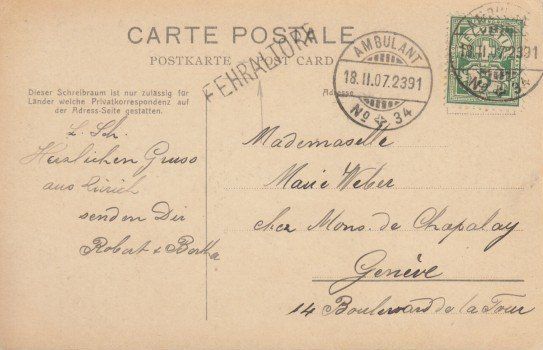 CARTE POSTALE
POSTKARTE POST CARD
FEHRALTORF
AMBULANT
18.II.07.2391
No 34
AMBULANT
18.II.07.2391
No 34
Dieser Schreibraum ist nur zulässig für
Länder welche Privatkorrespondenz auf
der Adress-Seite gestatten.
Adresse
L. Sch.
Herzlichen Gruss
aus Zürich
senden Dir
Robert & Bertha
Mademoiselle
Marie Weber
chez Mons. de Chapalay
Genève
14 Boulevard de la Tour